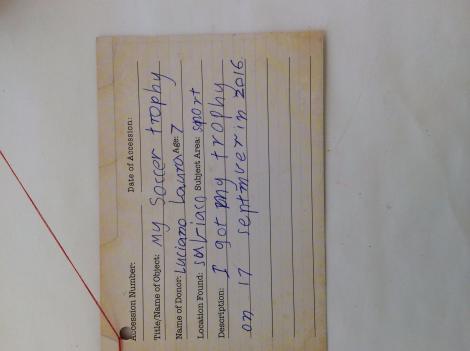 Accession Number: Date of Accession:
Title/Name of Object: My Soccer trophy
Name of Donor: Luciano Laura Age: 7
Location Found: subiaco Subject Area: sport
Description: I got my trophy
on 17 septmver in 2016